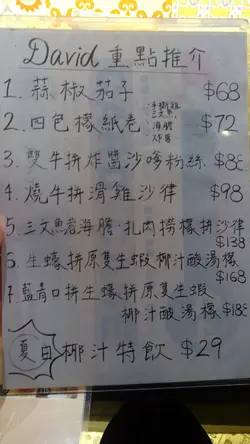 David 重點推介
1. 蒜椒茄子 $68
2. 四色檬紙卷 手撕雞 三文魚 海膽 炸蕉 $72
3. 雙牛拼炸醬沙嗲粉絲 $88
4. 燒牛拼滑雞沙律 $98
5. 三文魚着海膽·扎肉撈檬拼沙律
$138
6. 生蠔拼原隻生蝦椰汁酸湯檬
$168
7. 藍青口拼生蠔拼原隻生蝦
椰汁酸湯檬 $188
夏日 椰汁特飲 $29